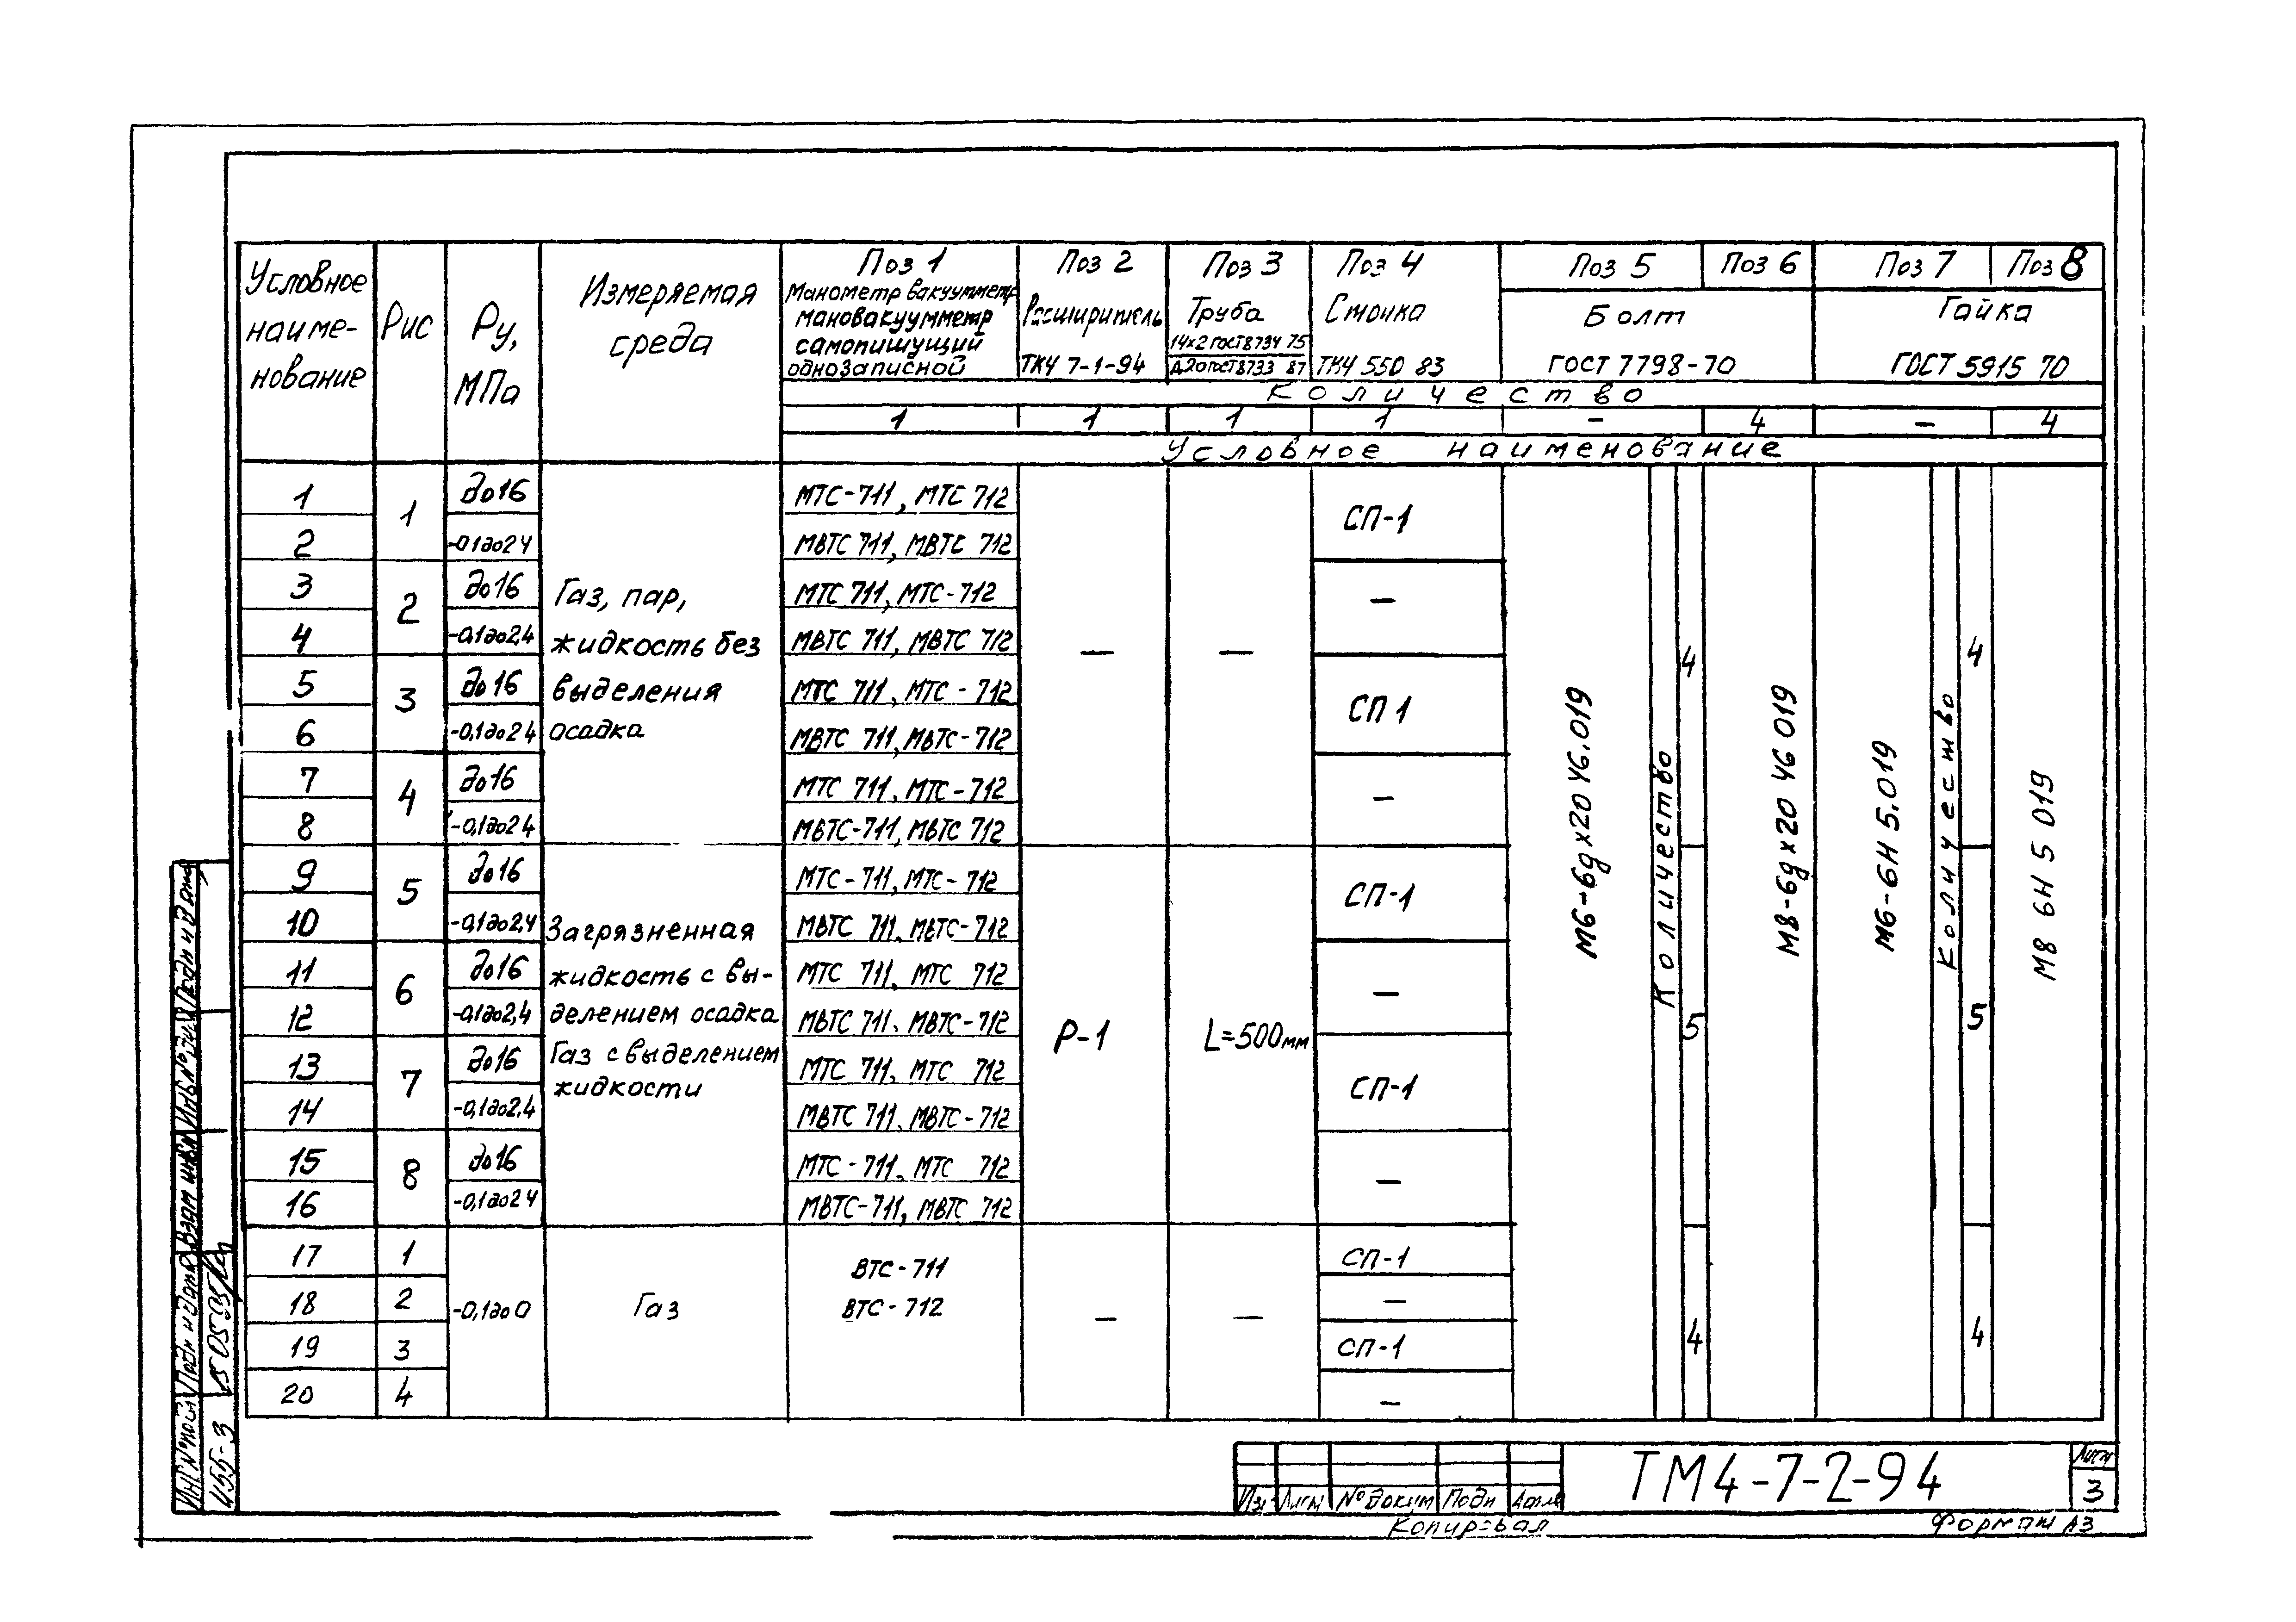 Условное наиме- нование
Рис
Ру, МПа
Измеряемая среда
Поз 1
Манометр вакуумметр
мановакуумметр
самопишущий
однозаписной
Поз 2
Расширитель
ТК4 7-1-94
Поз 3
Труба
14х2 ГОСТ 8734 75
Д20 ГОСТ 8733 87
Поз 4
Стойка
ТК4 550 83
Поз 5 Поз 6
Болт
ГОСТ 7798-70
Поз 7 Поз 8
Гайка
ГОСТ 5915 70
Количество
1 1 1 1 – 4 – 4
Условное наименование
1 1 до16 МТС-711, МТС 712 СП-1
2 -0,1до24 МВТС 711, МВТС 712
3 2 до16 МТС 711, МТС-712 –
4 -0,1до2,4 МВТС 711, МВТС 712
5 3 до16 МТС 711, МТС-712 СП 1
6 -0,1до24 МВТС 711, МВТС-712
7 4 до16 МТС 711, МТС-712 –
8 -0,1до24 МВТС-711, МВТС 712
Газ, пар,
жидкость без
выделения
осадка
– –
9 5 до16 МТС-711, МТС-712 СП-1
10 -0,1до2,4 МВТС 711, МВТС-712
11 6 до16 МТС 711, МТС 712 –
12 -0,1до2,4 МВТС 711, МВТС-712
13 7 до16 МТС 711, МТС 712 СП-1
14 -0,1до2,4 МВТС 711, МВТС-712
15 8 до16 МТС-711, МТС 712 –
16 -0,1до24 МВТС-711, МВТС 712
Загрязненная
жидкость с вы-
делением осадка
Газ с выделением
жидкости
Р-1
L=500мм
17 1 СП-1
18 2 –
19 3 СП-1
20 4 –
-0,1до0
Газ
ВТС-711
ВТС-712
– –
М6-6gх20 46.019
Количество
4
5
4
М8-6gх20 46 019
М6-6Н 5.019
Количество
4
5
4
М8 6Н 5 019
Подп и дата
Инв № дубл
Взам инв №
Подп и дата
Инв № подл
455-3
Изм Лист № докум Подп Дата
ТМ4-7-2-94
Лист
3
Копировал
Формат А3